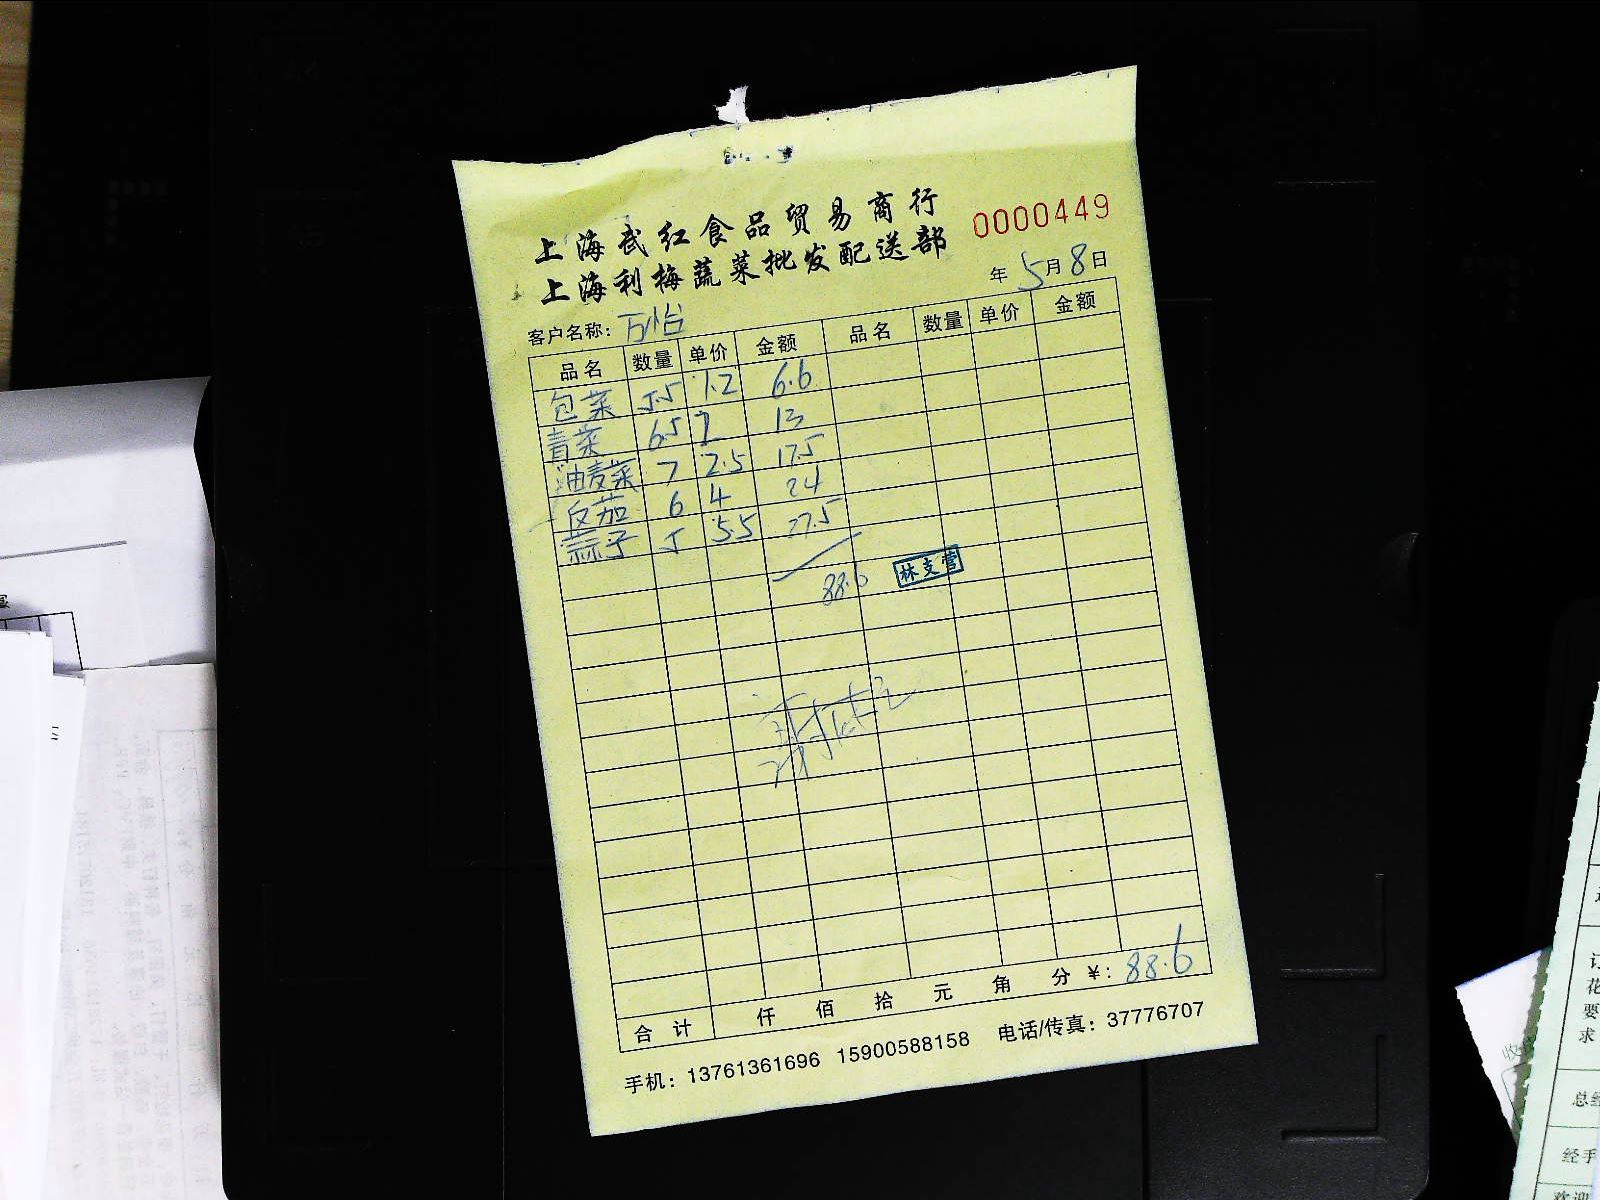 上海武红食品贸易商行
0000449
上海利梅蔬菜批发配送部
年 5月8日
客户名称: 万怡
品名 数量 单价 金额 品名 数量 单价 金额
包菜 5.5 1.2 6.6
青菜 6.5 2 13
油麦菜 7 2.5 17.5
反茄 6 4 24
蒜子 5 5.5 27.5
88.6 林支营
合计 仟 佰 拾 元 角 分 ¥: 88.6
手机: 13761361696 15900588158 电话/传真: 37776707
订
花
要
求
总经
经手
欢迎